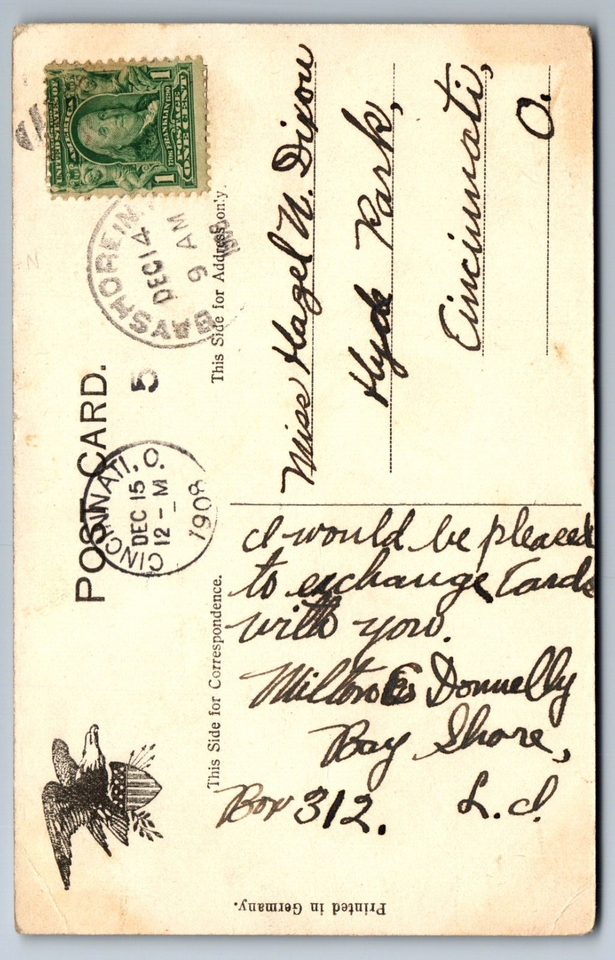 POST CARD.
This Side for Correspondence.
This Side for Address only.
UNITED STATES OF
AMERICA
FRANKLIN
POSTAGE
ONE CENT
1 1
BAYSHORE, N.
DEC 14
9 AM
1908
5
CINCINNATI, O.
DEC 15
12 - M
1908
Miss Hazel N. Dixon
Hyde Park,
Cincinnati,
O.
I would be pleased
to exchange Cards
with you.
Milton Donnelly
Bay Shore,
Box 312. L.I.
Printed in Germany.